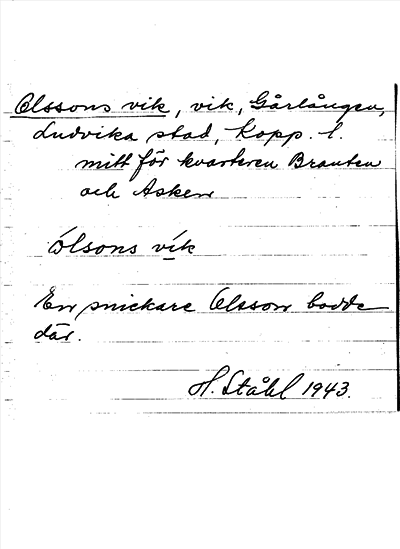 Olssons vik, vik, Gårlången,
Ludvika stad, Kopp. l.
mitt för kvarteren Branten
och Asken
ólsons vík
En snickare Olsson bodde
där.
H. Ståhl 1943.